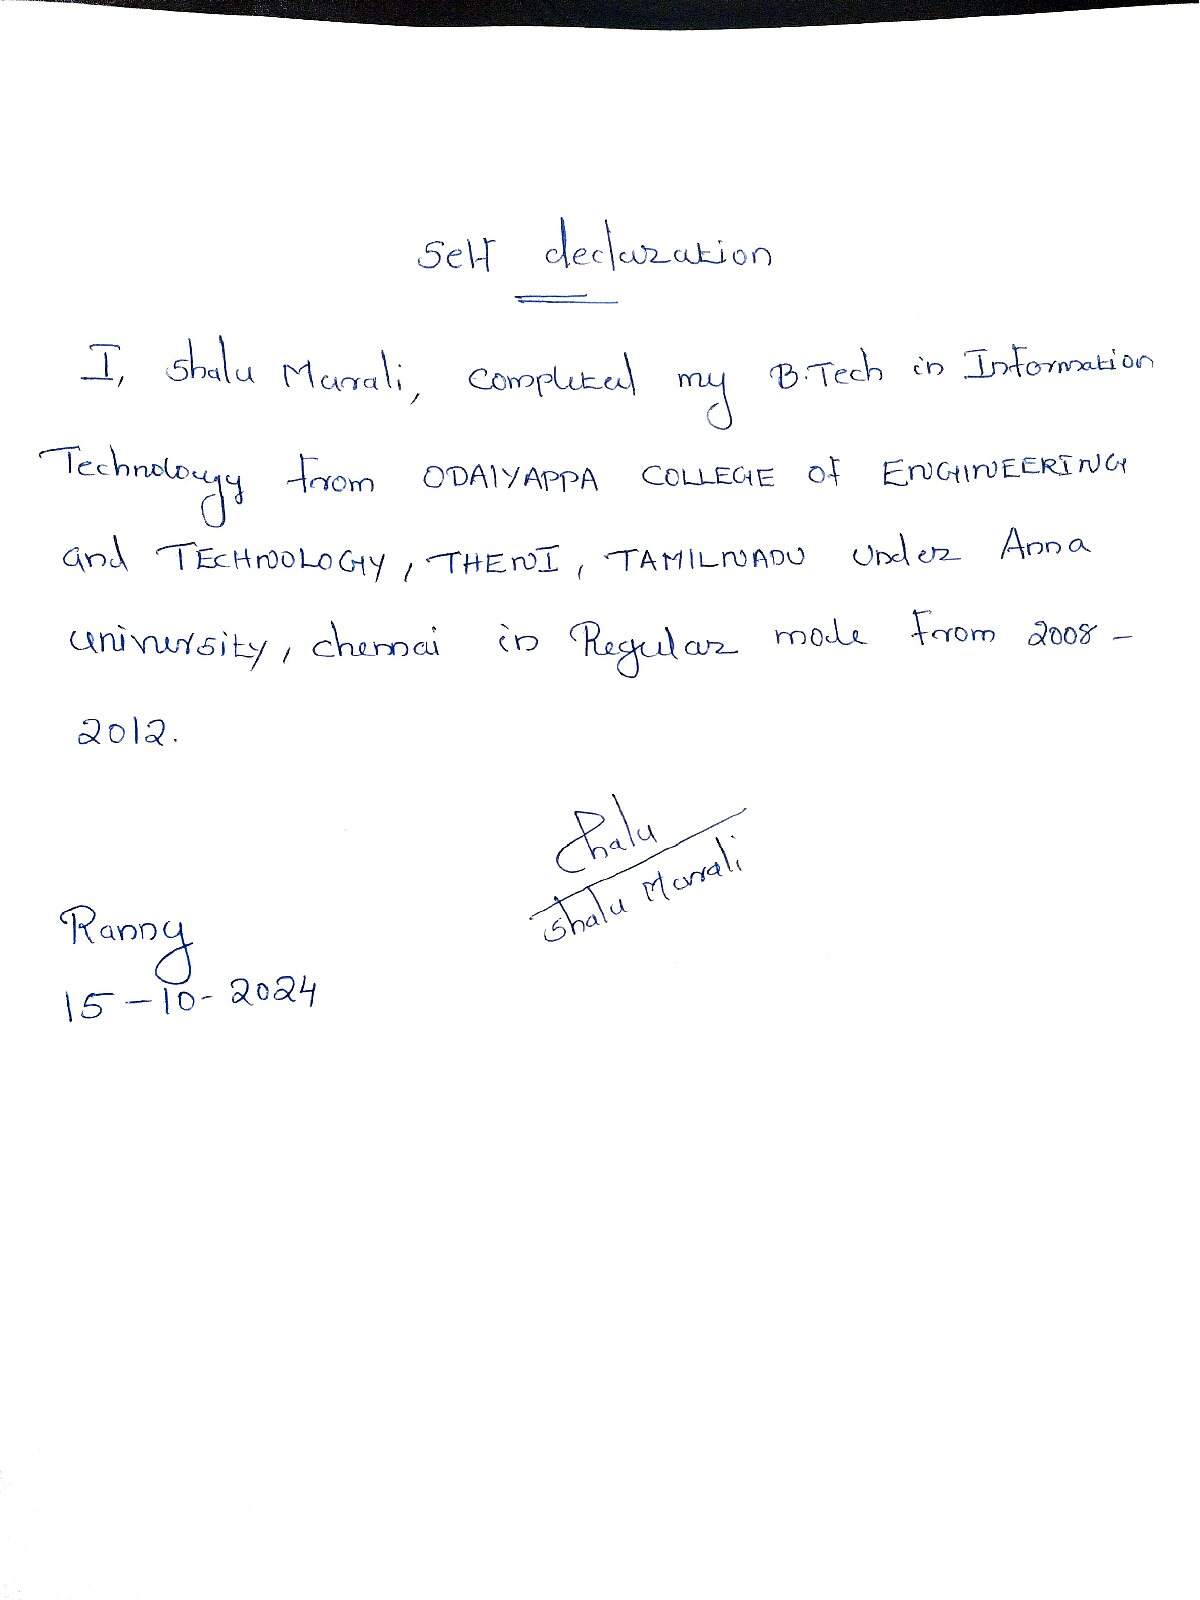 Self declaration
I, Shalu Murali, completed my B.Tech in Information
Technology from ODAIYAPPA COLLEGE of ENGINEERING
and TECHNOLOGY, THENI, TAMILNADU under Anna
university, chennai in Regular mode from 2008 -
2012.
Shalu
Shalu Murali
Ranny
15-10-2024